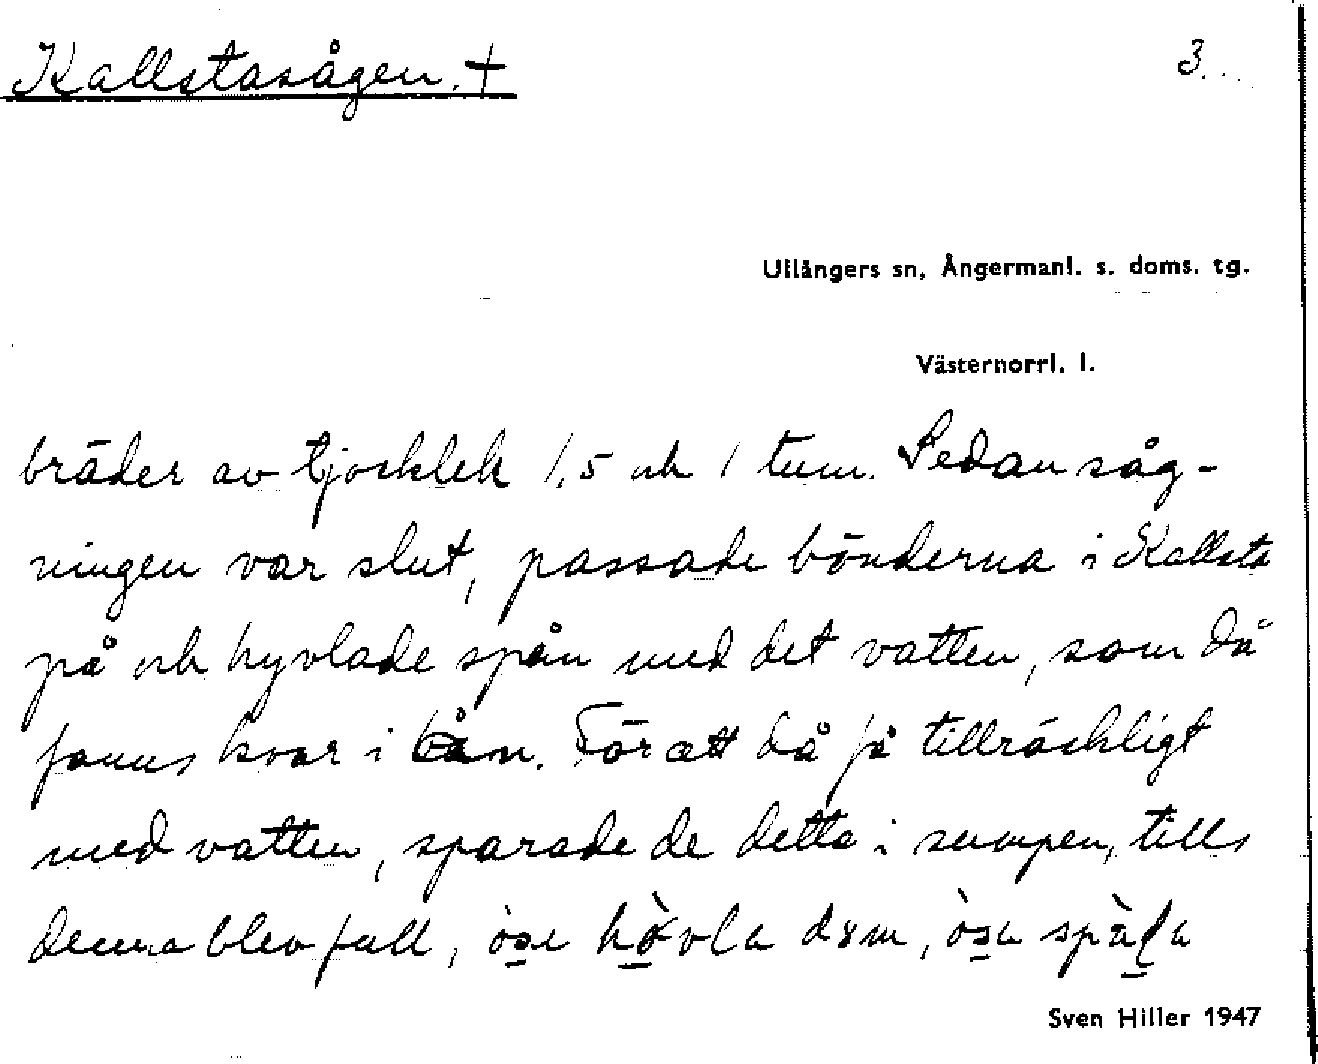 Kallstasågen. + 3.
Ullångers sn, Ångermanl. s. doms. tg.
Västernorrl. l.
bräder av tjocklek 1,5 och 1 tum. Sedan såg-
ningen var slut, passade bönderna i Kallsta
på och hyvlade spån med det vatten, som då
fanns kvar i ån. För att då få tillräckligt
med vatten, sparade de detta i sumpen, tills
denna blev full,
Sven Hiller 1947